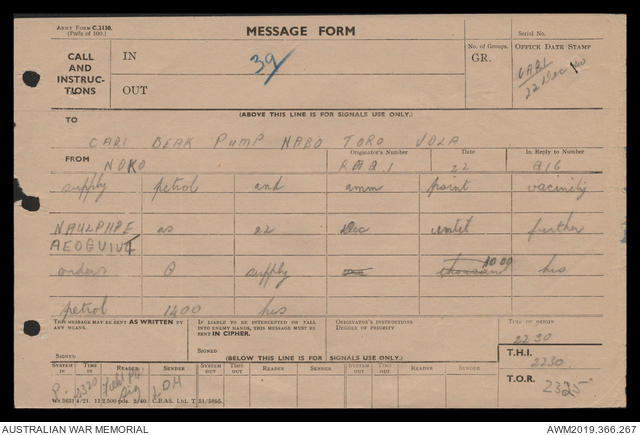 ARMY FORM C.2130.
(Pads of 100.)
MESSAGE FORM
Serial No.
CALL
AND
INSTRUC-
TIONS
IN
39
No. of Groups.
GR.
OFFICE DATE STAMP
CARI
22 Dec 40
OUT
(ABOVE THIS LINE IS FOR SIGNALS USE ONLY.)
TO
CARI BEAK PUMP NABO TORO VOLA
FROM
NOKO
Originator's Number
Date
22
In Reply to Number
supply petrol and amm point vacinity
NAULPHPE as 22 Dec until further
AEOGUIVE
orders supply thousand 1000 hrs
petrol 1400 hrs
THIS MESSAGE MAY BE SENT AS WRITTEN BY
ANY MEANS.
IF LIABLE TO BE INTERCEPTED OR FALL
INTO ENEMY HANDS, THIS MESSAGE MUST BE
SENT IN CIPHER.
ORIGINATOR'S INSTRUCTIONS
DEGREE OF PRIORITY
TIME OF ORIGIN
2230
SIGNED
SIGNED
(BELOW THIS LINE IS FOR SIGNALS USE ONLY.)
T.H.I.
2230
SYSTEM IN TIME IN READER SENDER SYSTEM OUT TIME OUT READER SENDER SYSTEM OUT TIME OUT READER SENDER
T.O.R.
2325
2320 LDH
C.B.AS. Ltd. T 51/5865.
AUSTRALIAN WAR MEMORIAL
AWM2019.366.267